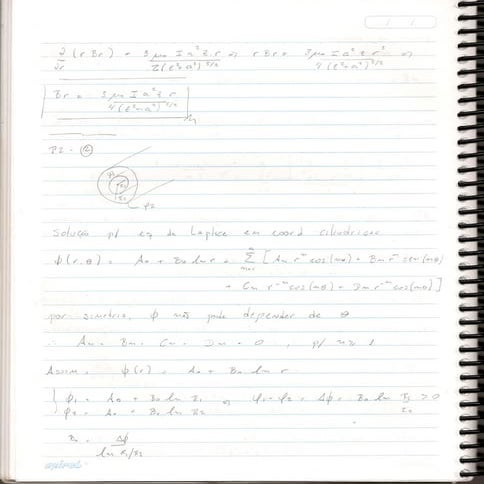 ∂/∂r (r Br) = 3 μ₀ I a² z r / 2(z²+a²)^5/2 ⇒ r Br = 3 μ₀ I a² z r² / 4(z²+a²)^5/2 ⇒
Br = 3 μ₀ I a² z r / 4(z²+a²)^5/2
P2 - ②
φ2
Solução p/ eq de Laplace em coord cilíndricas
φ(r,θ) = A₀ + B₀ ln r + Σ [Am r^m cos(mθ) + Bm r^m sen(mθ)
+ Cm r^-m cos(mθ) + Dm r^-m cos(mθ)]
por simetria, φ não pode depender de θ
∴ Am = Bm = Cm = Dm = 0, p/ m ≥ 1
Assim φ(r) = A₀ + B₀ ln r
φ₁ = A₀ + B₀ ln R₁ ⇒ φ₁ - φ₂ = Δφ = B₀ ln R₁/R₂ > 0
φ₂ = A₀ + B₀ ln R₂
B₀ = Δφ / ln R₁/R₂